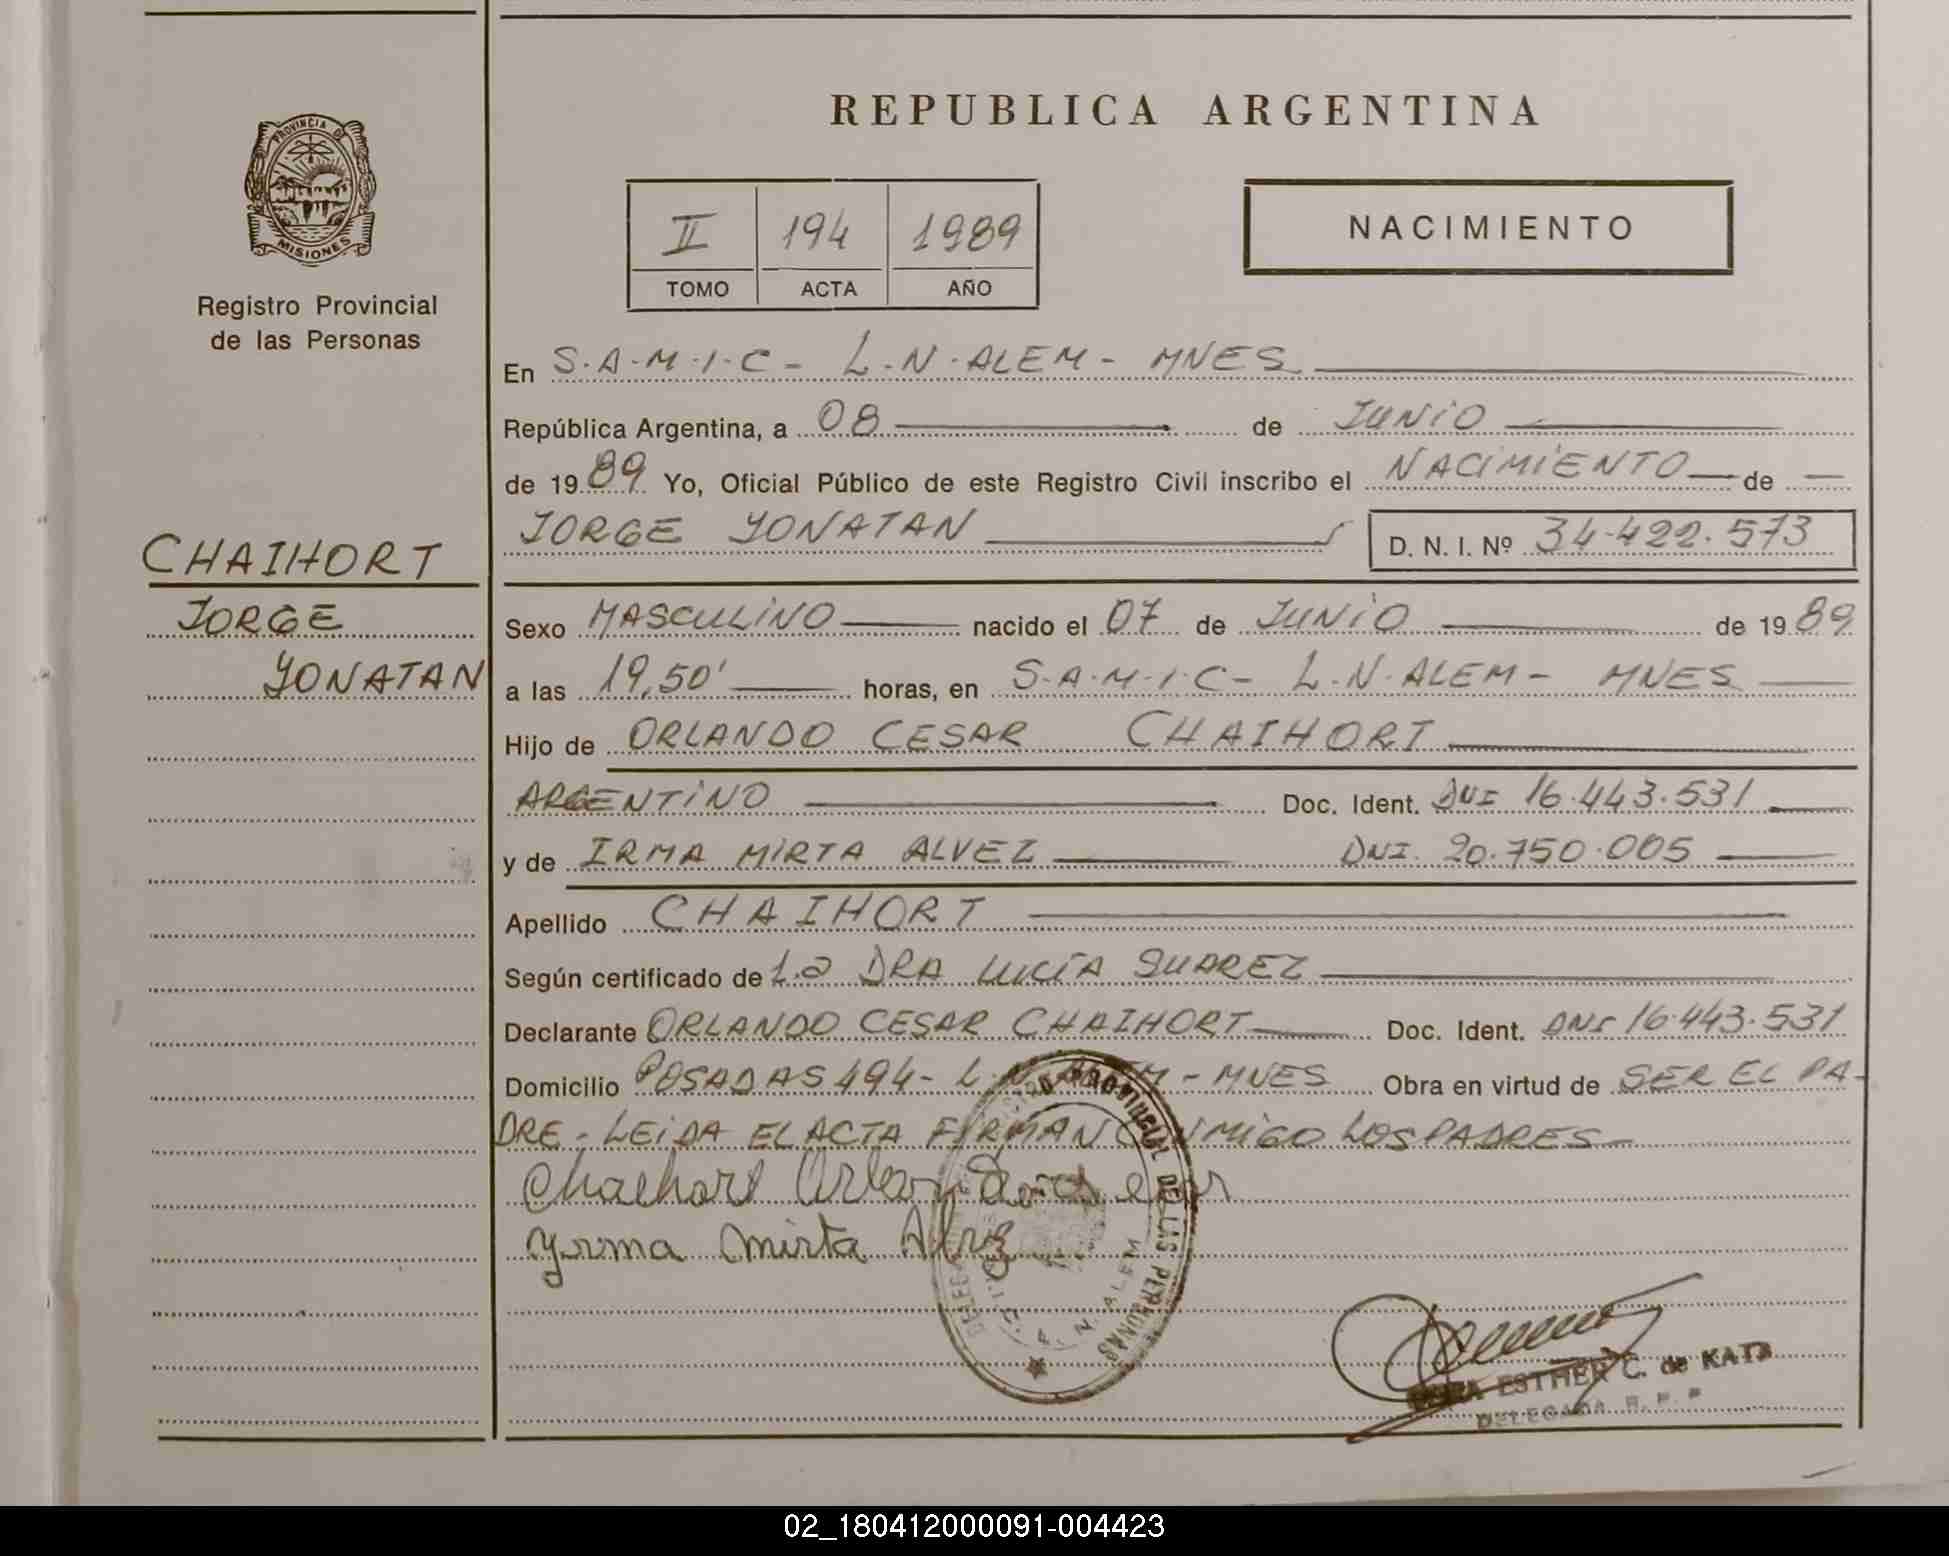 REPUBLICA ARGENTINA
PROVINCIA DE
MISIONES
Registro Provincial
de las Personas
II 194 1989
TOMO ACTA AÑO
NACIMIENTO
CHAIHORT
JORGE
YONATAN
En S.A.M.I.C - L.N.ALEM - MNES
República Argentina, a 08 de JUNIO
de 1989 Yo, Oficial Público de este Registro Civil inscribo el NACIMIENTO de
JORGE YONATAN D. N. I. Nº 34.422.573
Sexo MASCULINO nacido el 07 de JUNIO de 1989
a las 19,50' horas, en S.A.M.I.C - L.N.ALEM - MNES
Hijo de ORLANDO CESAR CHAIHORT
ARGENTINO Doc. Ident. DNI 16.443.531
y de IRMA MIRTA ALVEZ DNI. 20.750.005
Apellido CHAIHORT
Según certificado de La DRA LUCÍA SUAREZ
Declarante ORLANDO CESAR CHAIHORT Doc. Ident. DNI 16.443.531
Domicilio POSADAS 494 - L.N.ALEM - MNES Obra en virtud de SER EL PA-
DRE - LEIDA EL ACTA FIRMAN CONMIGO LOS PADRES -
Chaihort Orlando Cesar
Yrma Mirta Alvez
PROVINCIAL DE LAS PERSONAS
L. N. ALEM
ESTHER C. de KATZ
DELEGADA R. P. P.
02_180412000091-004423